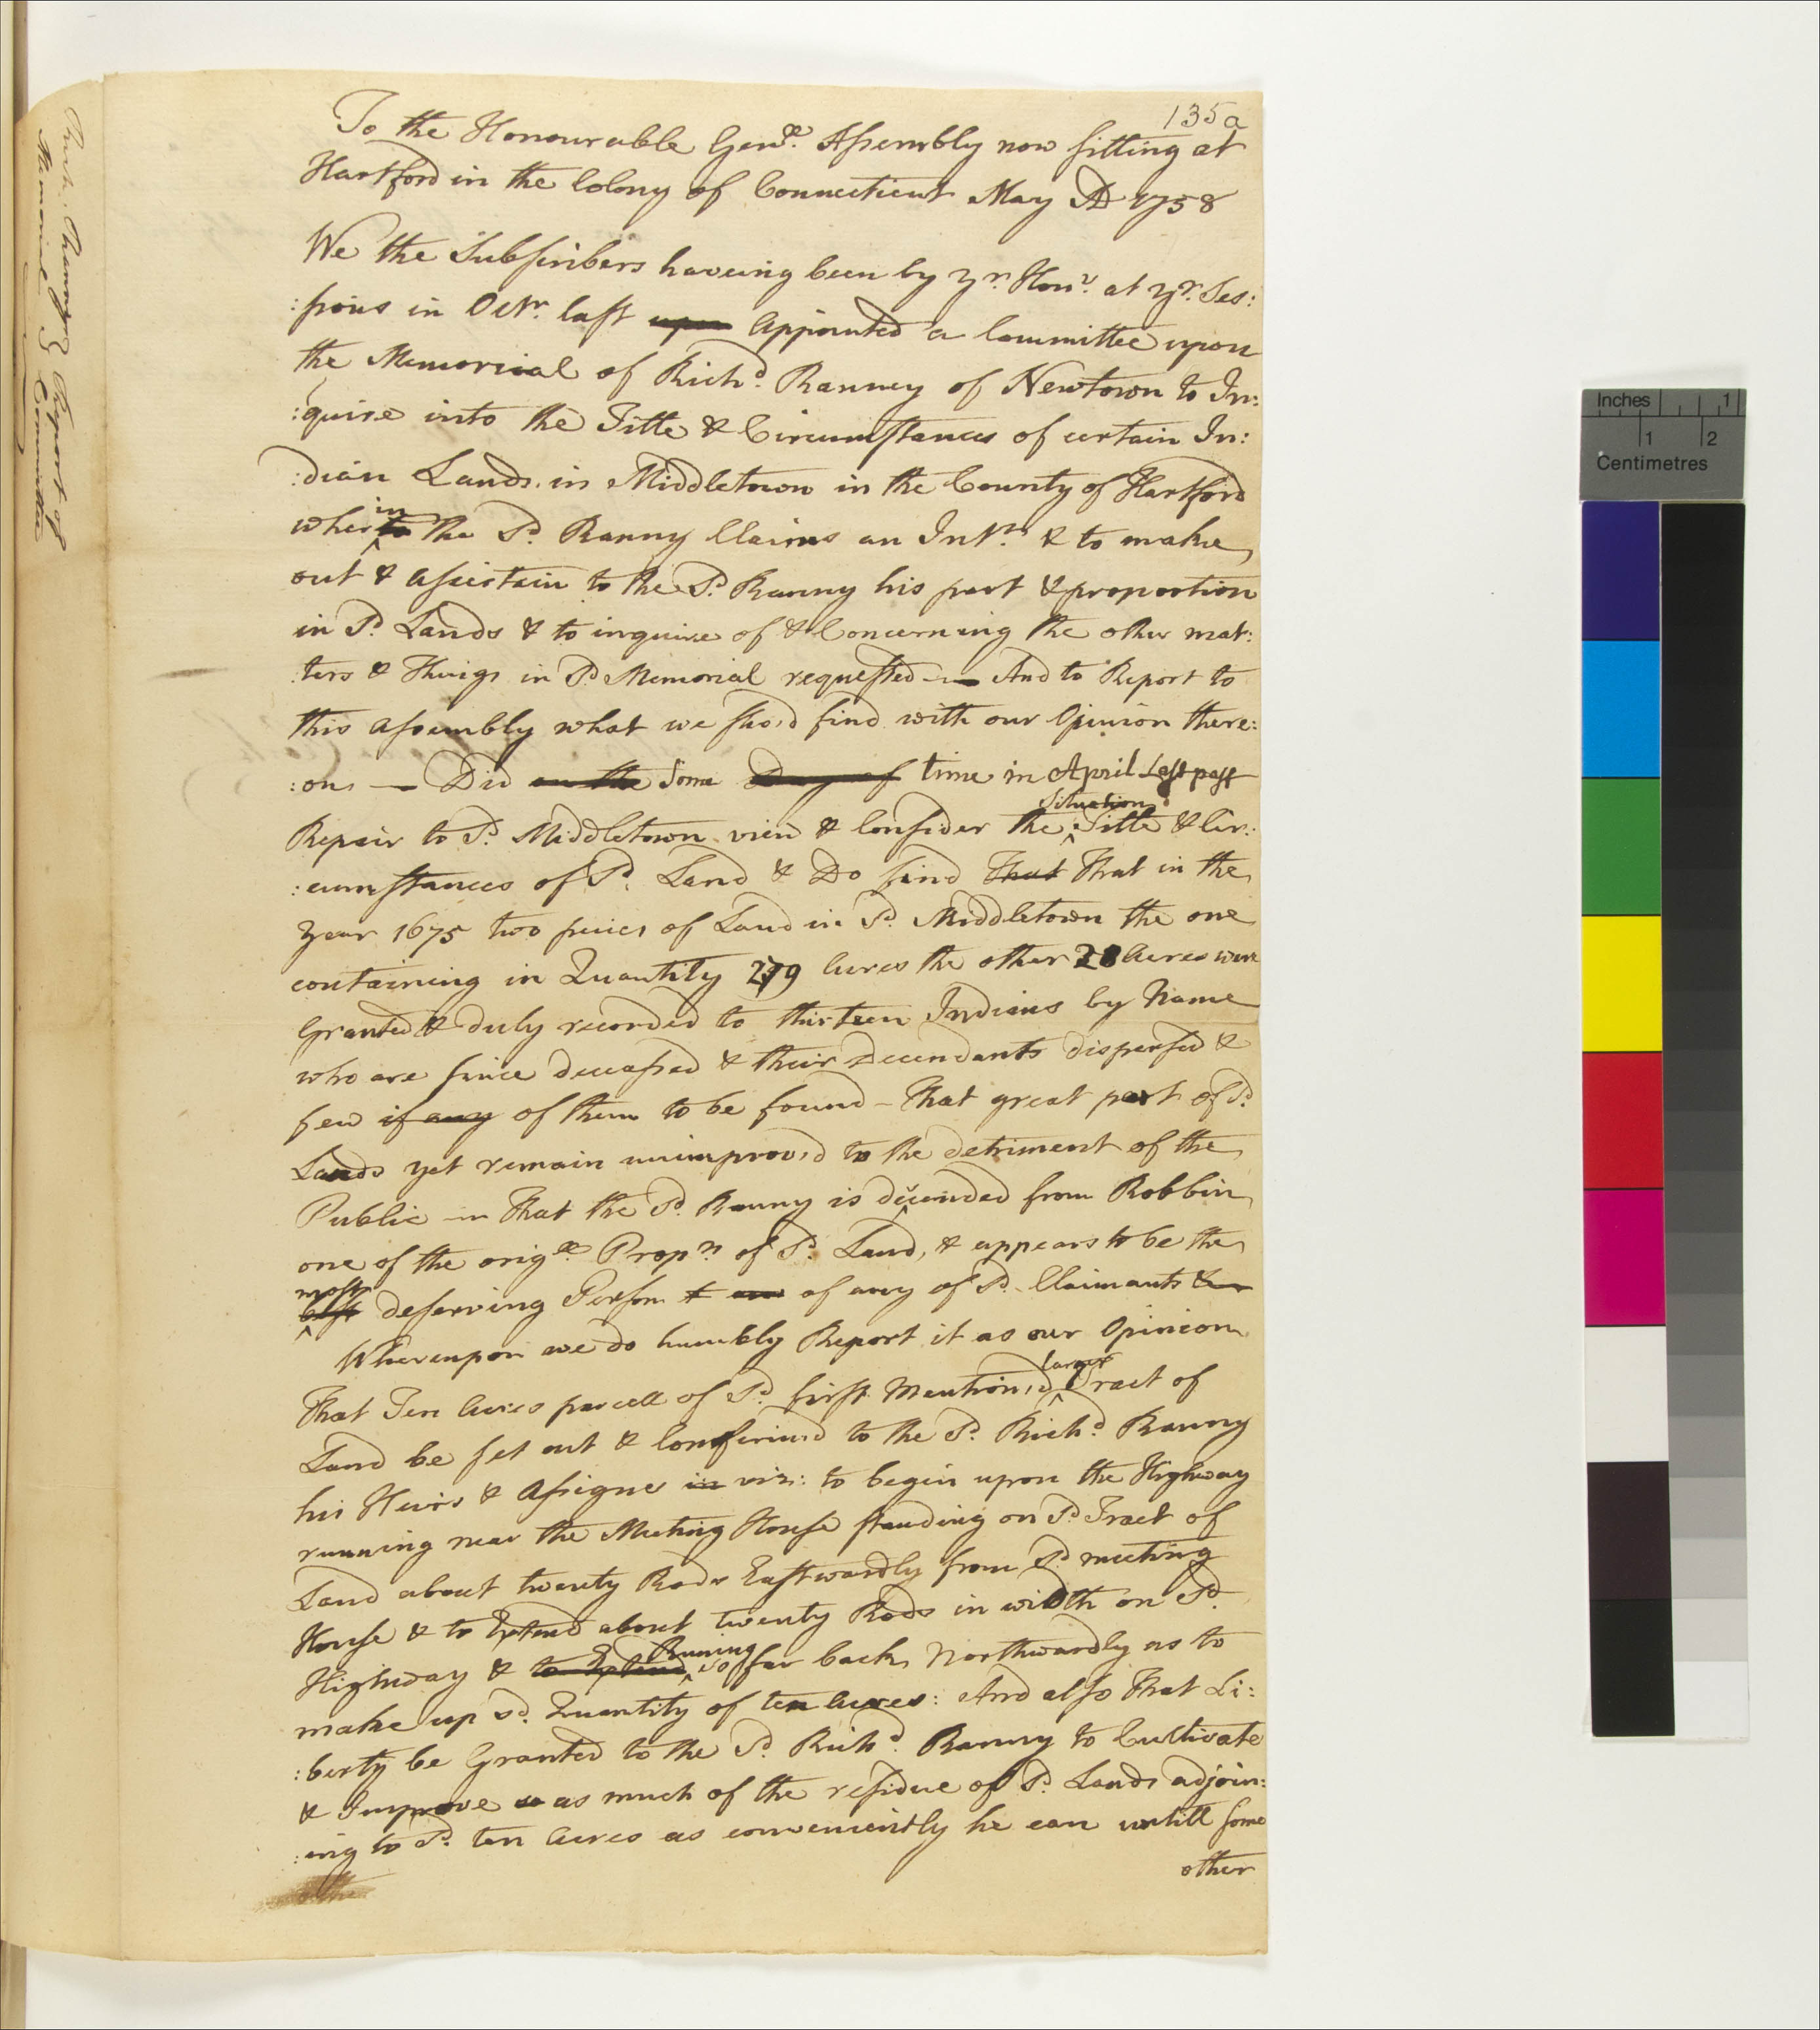 135a
To the Honourable Genll. Assembly now sitting at
Hartford in the Colony of Connecticut May AD 1758
We the Subscribers haveing been by yr. Honrs. at yr. Ses:
:sions in Octr. last upon Appointed a Committee upon
the Memorial of Richd. Ranney of Newtown to In:
:quire into the Title & Circumstances of certain In:
:dian Lands in Middletown in the County of Hartford
wher in to the Sd. Ranny Claims an Intrst. & to make
out & assertain to the Sd. Ranny his part & proportion
in Sd. Lands & to inquire of & Concerning the other mat:
:ters & Things in Sd. Memorial requested — And to Report to
this Assembly what we sho'd find with our Opinion there:
:on, — Did on the Some Day of time in April Last past
Repair to Sd. Middletown view & Consider the Situation Title & Cir:
:cumstances of Sd. Land & Do find That That in the
year 1675 two peices of Land in Sd. Middletown the one
containing in Quantity Acres the other 28 Acres were
Granted & duly recorded to thirteen Indians by Name
who are since deceased & their decendants dispersed &
few if any of them to be found – That great part of Sd.
Lands yet remain unimprov'd to the detriment of the
Public — That the Sd. Ranny is decended from Robbin
one of the origll. Proprs. of Sd. Land, & appears to be the
most best deserving Person of any of Sd. Claimants &
Whereupon we do humbly Report it as our Opinion
That Ten Acres parcell of Sd. first Mention'd larger Tract of
Land be set out & Confirm'd to the Sd. Richd. Ranny
his Heirs & Assigns in viz: to begin upon the Highway
running near the Meeting House standing on Sd. Tract of
Land about twenty Rods Eastwardly from Sd. meeting
House & to Extend about twenty Rods in width on Sd.
Highway & to Extend Runing so far back Northwardly as to
make up sd. Quantity of ten Acres: And also That Li:
:berty be Granted to the Sd. Richd. Ranny to Cultivate
& Improve so as much of the residue of Sd. Lands adjoin:
:ing to Sd. ten Acres as conveniently he can untill some
other
Richd. Ranny's
Memorial
Report of
Committee
Inches 1
1 2
Centimetres